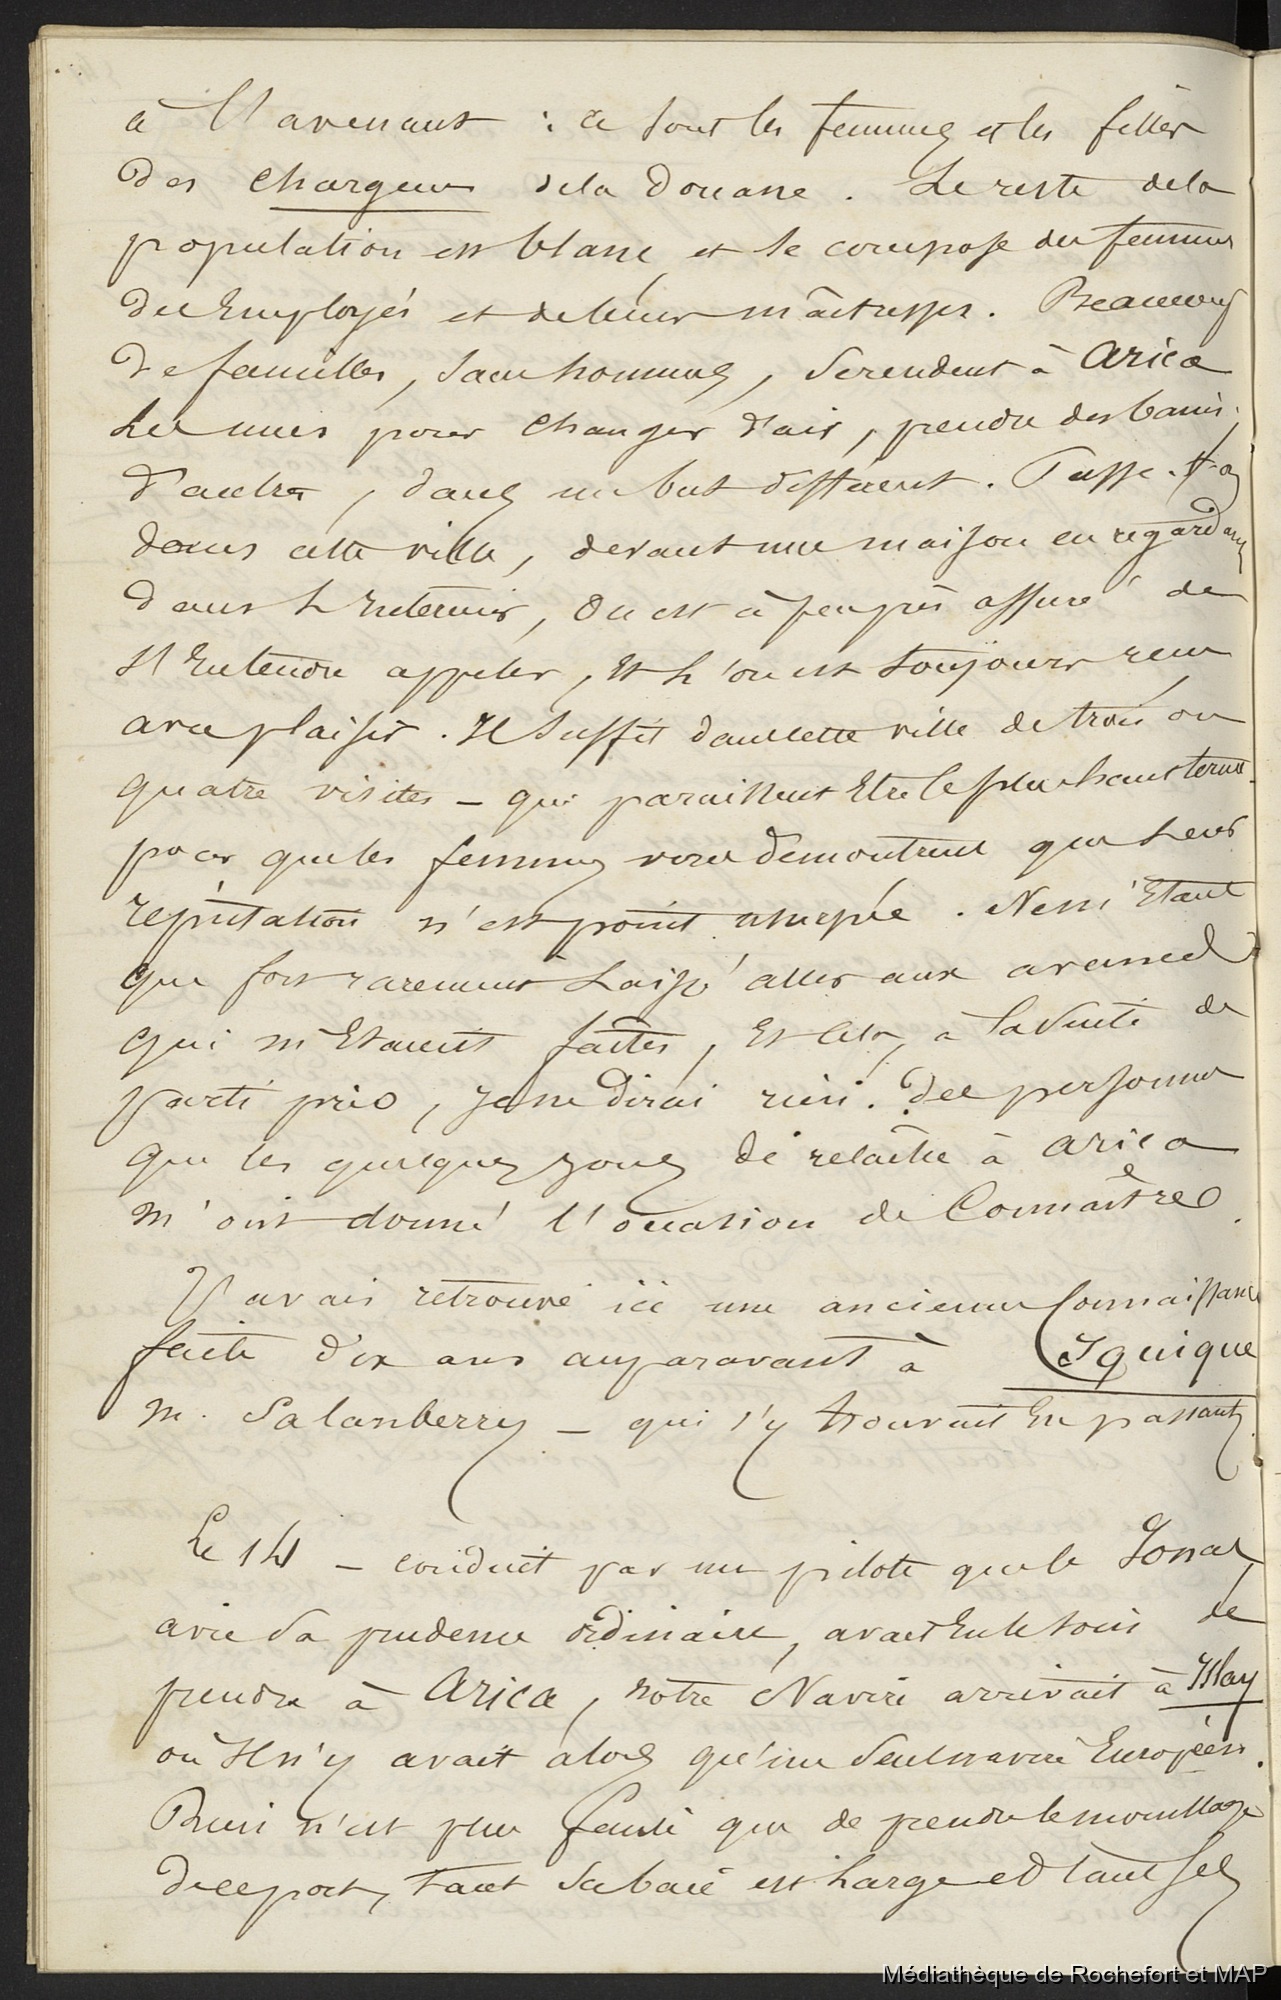 à l'avenant : ce sont les femmes et les filles
des chargeurs de la Douane. Le reste de la
population est blanc, et se compose des femmes
des Employés et de leurs maîtresses. Beaucoup
de familles, sans hommes, se rendent à Arica
les unes pour changer d'air, prendre des bains;
d'autres, dans un but différent. Passe-t-on
dans cette ville, devant une maison en regardant
dans l'Interieur, on est à peu près assuré de
s'Entendre appeler, Et l'on est toujours reçu
avec plaisir. Il suffit dans cette ville de trois ou
quatre visites – qui paraissent Etre le plus haut terme
pour que les femmes vous démontrent que leur
réputation n'est point usurpée. Ne m'Etant
que fort rarement laissé aller aux avances
qui m'Etaient faites, Et cela, à la suite de
parti pris, je ne dirai rien. Des personnes
que les quelques jours de relâche à Arica
m'ont donné l'occasion de Connaître.
J'avais retrouvé ici une ancienne Connaissance
faite dix ans auparavant à Iquique
M. Salanberry – qui s'y trouvait En passant,
Le 14 – conduit par un pilote que le
avec sa prudence ordinaire, avait Eu le soin de
prendre à Arica, notre Navire arrivait à Islay
où Il n'y avait alors qu'un seul navire Européen.
Rien n'est plus facile que de prendre le mouillage
de ce port, tant sa baie est large et tant ses
Médiathèque de Rochefort et MAP